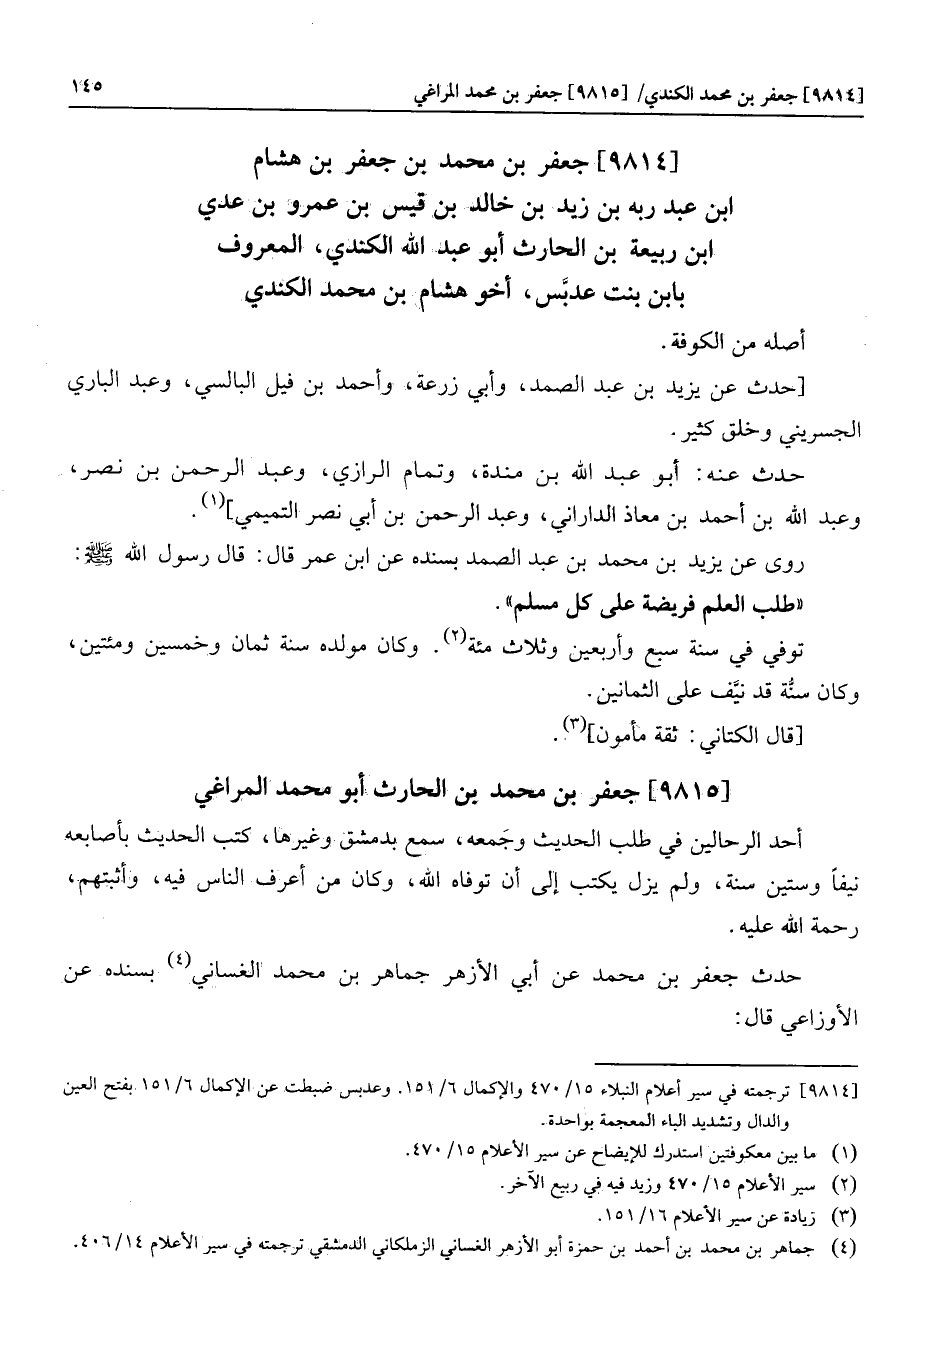 [٩٨١٤] جعفر بن محمد الكندي/ [٩٨١٥] جعفر بن محمد المراغي ١٤٥
[٩٨١٤] جعفر بن محمد بن جعفر بن هشام
ابن عبد ربه بن زيد بن خالد بن قيس بن عمرو بن عدي
ابن ربيعة بن الحارث أبو عبد الله الكندي، المعروف
بابن بنت عدبَّس، أخو هشام بن محمد الكندي
أصله من الكوفة.
[حدث عن يزيد بن عبد الصمد، وأبي زرعة، وأحمد بن فيل البالسي، وعبد الباري
الجسريني وخلق كثير.
حدث عنه: أبو عبد الله بن مندة، وتمام الرازي، وعبد الرحمن بن نصر،
وعبد الله بن أحمد بن معاذ الداراني، وعبد الرحمن بن أبي نصر التميمي](١).
روى عن يزيد بن محمد بن عبد الصمد بسنده عن ابن عمر قال: قال رسول الله ﷺ:
«طلب العلم فريضة على كل مسلم».
توفي في سنة سبع وأربعين وثلاث مئة(٢). وكان مولده سنة ثمان وخمسين ومئتين،
وكان سنُّة قد نيَّف على الثمانين.
[قال الكتاني: ثقة مأمون](٣).
[٩٨١٥] جعفر بن محمد بن الحارث أبو محمد المراغي
أحد الرحالين في طلب الحديث وجَمعه، سمع بدمشق وغيرها، كتب الحديث بأصابعه
نيفاً وستين سنة، ولم يزل يكتب إلى أن توفاه الله، وكان من أعرف الناس فيه، وأثبتهم،
رحمة الله عليه.
حدث جعفر بن محمد عن أبي الأزهر جماهر بن محمد الغساني(٤) بسنده عن
الأوزاعي قال:
[٩٨١٤] ترجمته في سير أعلام النبلاء ١٥/ ٤٧٠ والإكمال ٦/ ١٥١. وعدبس ضبطت عن الإكمال ٦/ ١٥١ بفتح العين
والدال وتشديد الباء المعجمة بواحدة.
(١) ما بين معكوفتين استدرك للإيضاح عن سير الأعلام ١٥/ ٤٧٠.
(٢) سير الأعلام ١٥/ ٤٧٠ وزيد فيه في ربيع الآخر.
(٣) زيادة عن سير الأعلام ١٦/ ١٥١.
(٤) جماهر بن محمد بن أحمد بن حمزة أبو الأزهر الغساني الزملكاني الدمشقي ترجمته في سير الأعلام ١٤/ ٤٠٦.